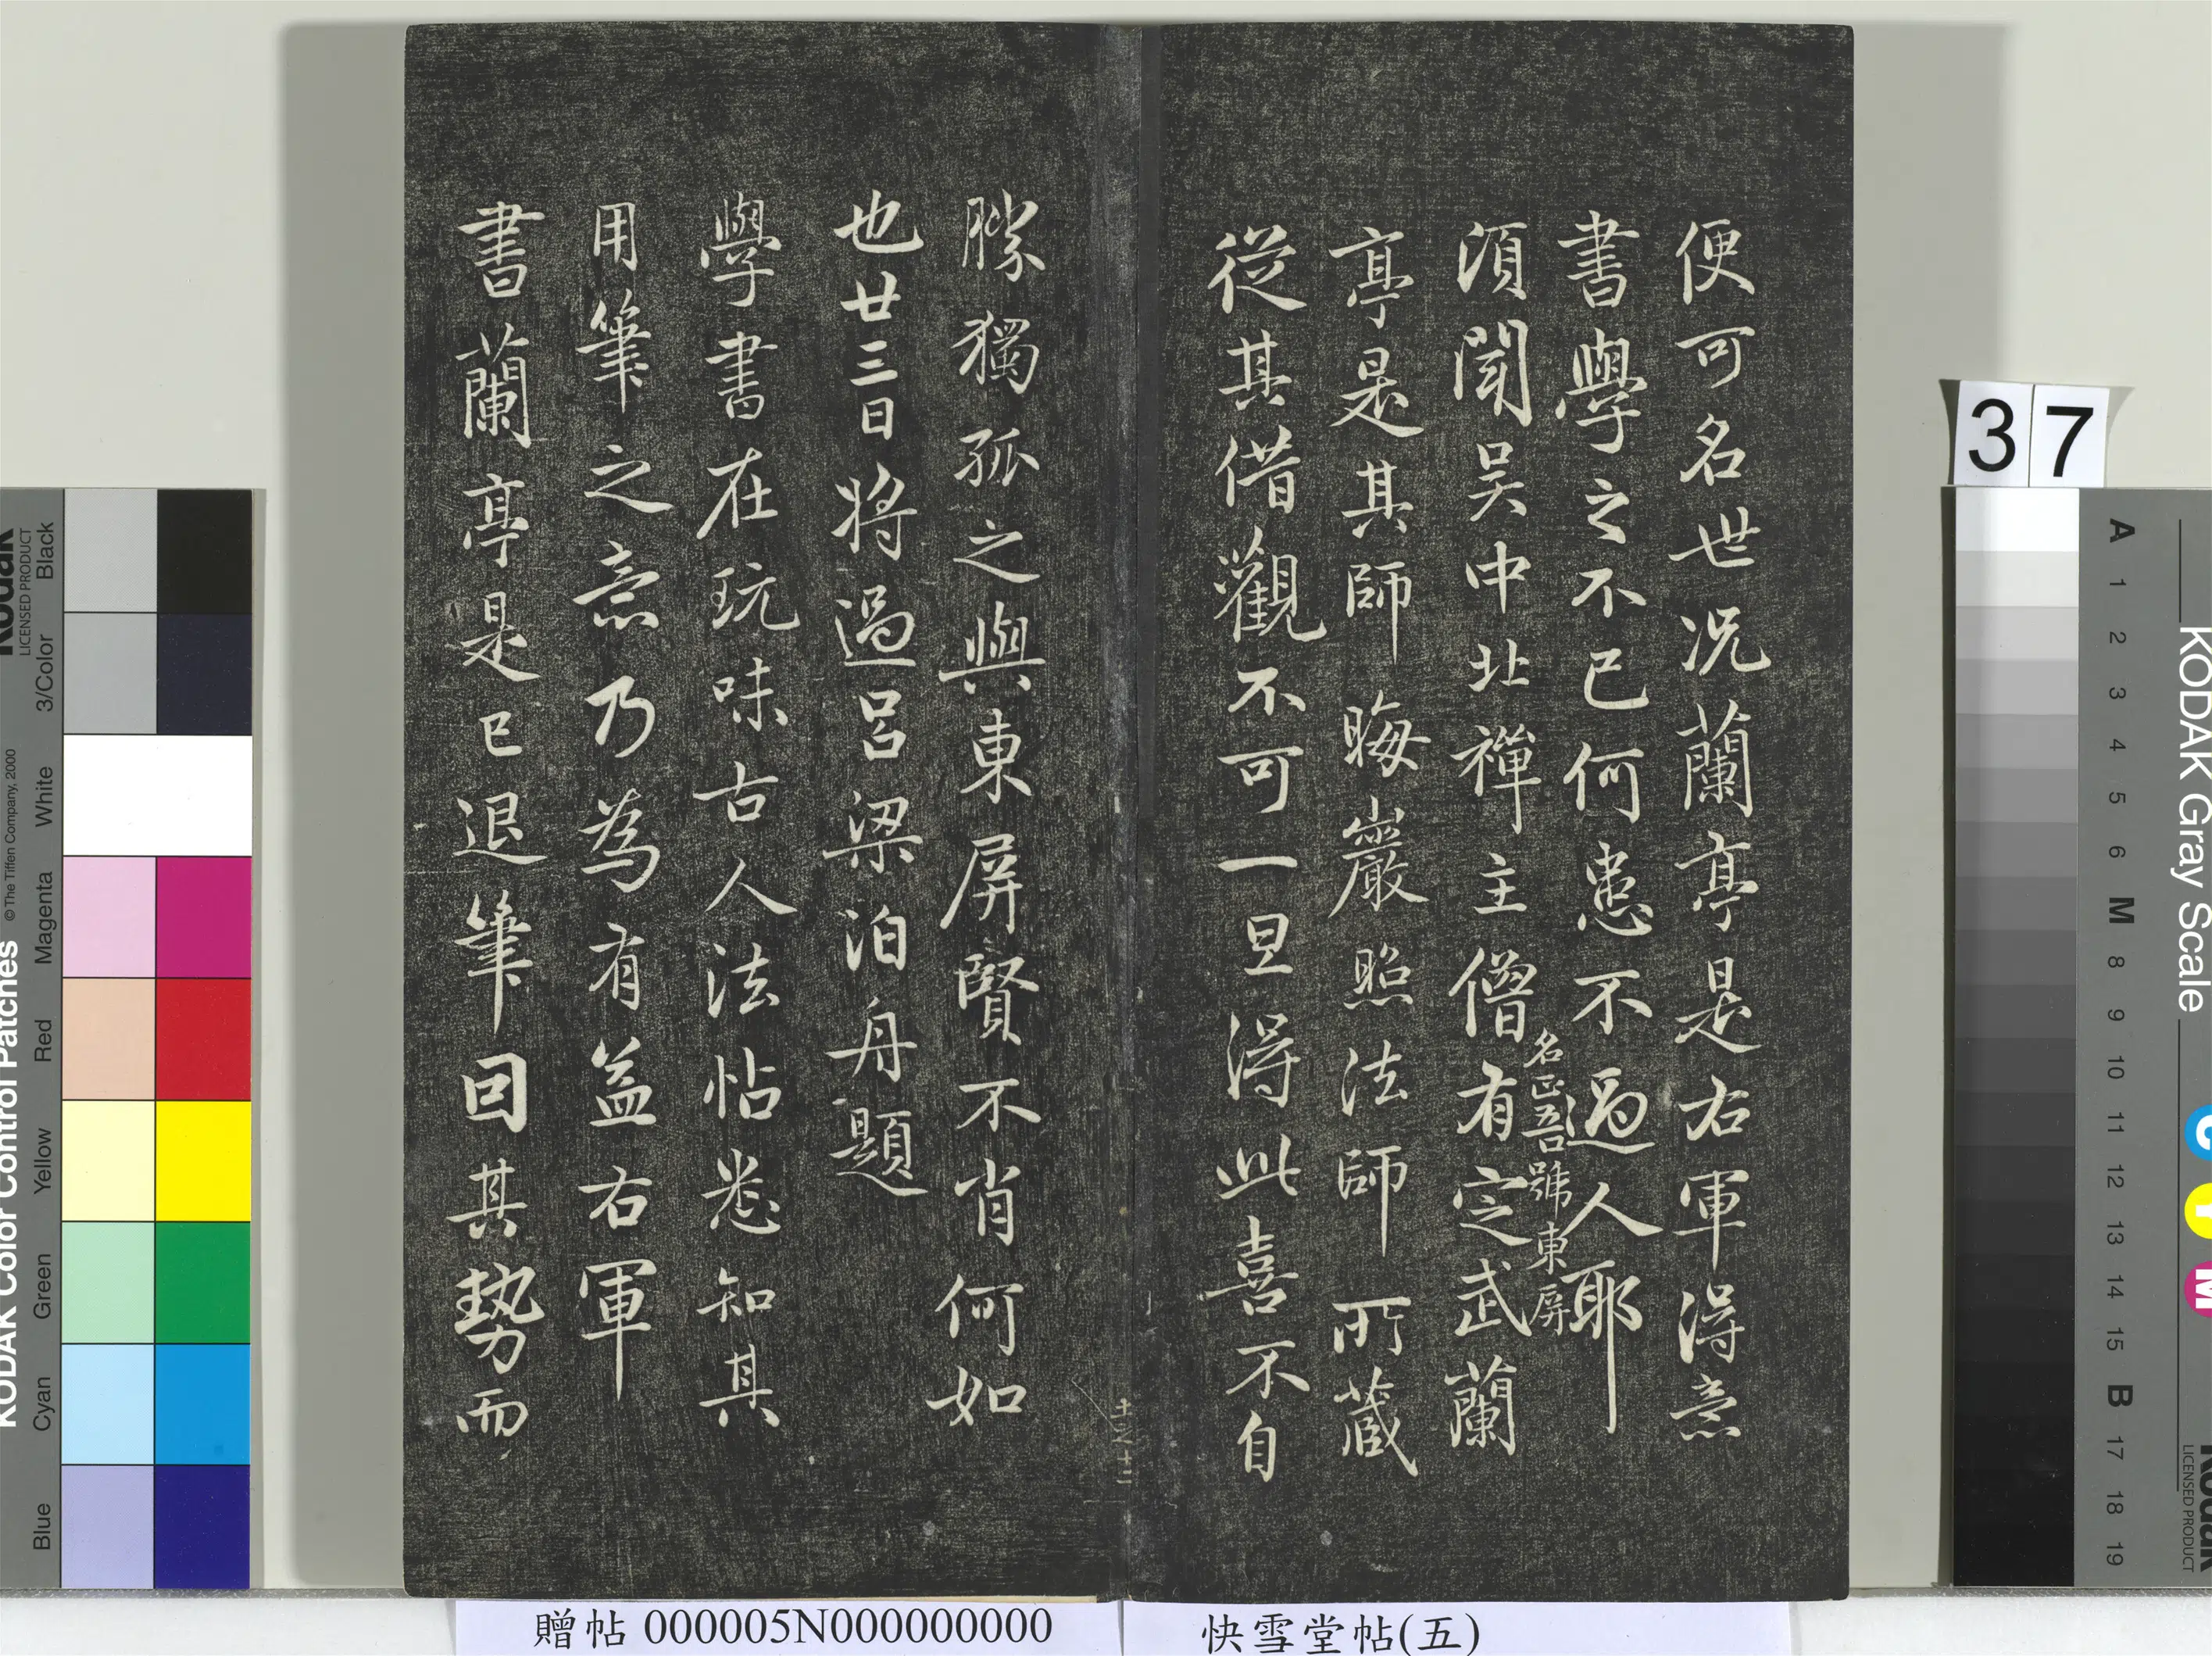 便可名世況蘭亭是右軍得意
書學之不已何患不過人耶
須聞吳中北禪主僧有定武蘭
名正吾號東屏
亭是其師晦巖照法師所藏
從其借觀不可一旦得此喜不自
勝獨孤之與東屏賢不肖何如
也廿三日將過呂梁泊舟題
學書在玩味古人法帖悉知其
用筆之意乃為有益右軍
書蘭亭是已退筆因其勢而
37
快雪堂帖(五)
贈帖 000005N000000000
KODAK Color Control Patches
© The Tiffen Company, 2000
Kodak
LICENSED PRODUCT
Black
3/Color
White
Magenta
Red
Yellow
Green
Cyan
Blue
KODAK Gray Scale
C
Y
M
Kodak
LICENSED PRODUCT
A 1 2 3 4 5 6 M 8 9 10 11 12 13 14 15 B 17 18 19